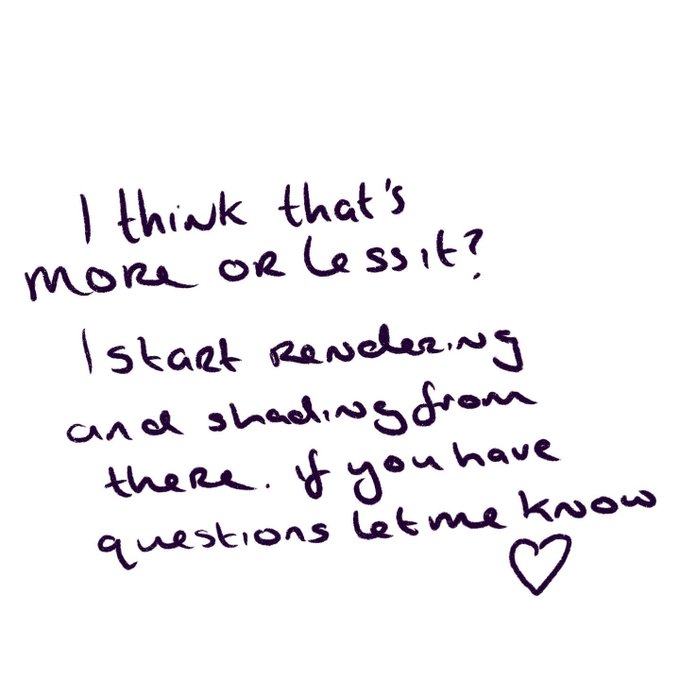 I think that's
more or less it?
I start rendering
and shading from
there. if you have
questions let me know